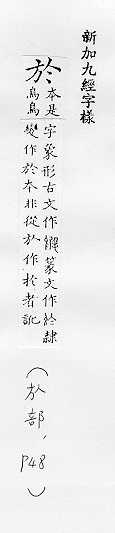 新加九經字樣
於
本是
烏鳥
字象形古文作篆文作於隸
變作於本非從㫃作扵者訛
（㫃部，P48）